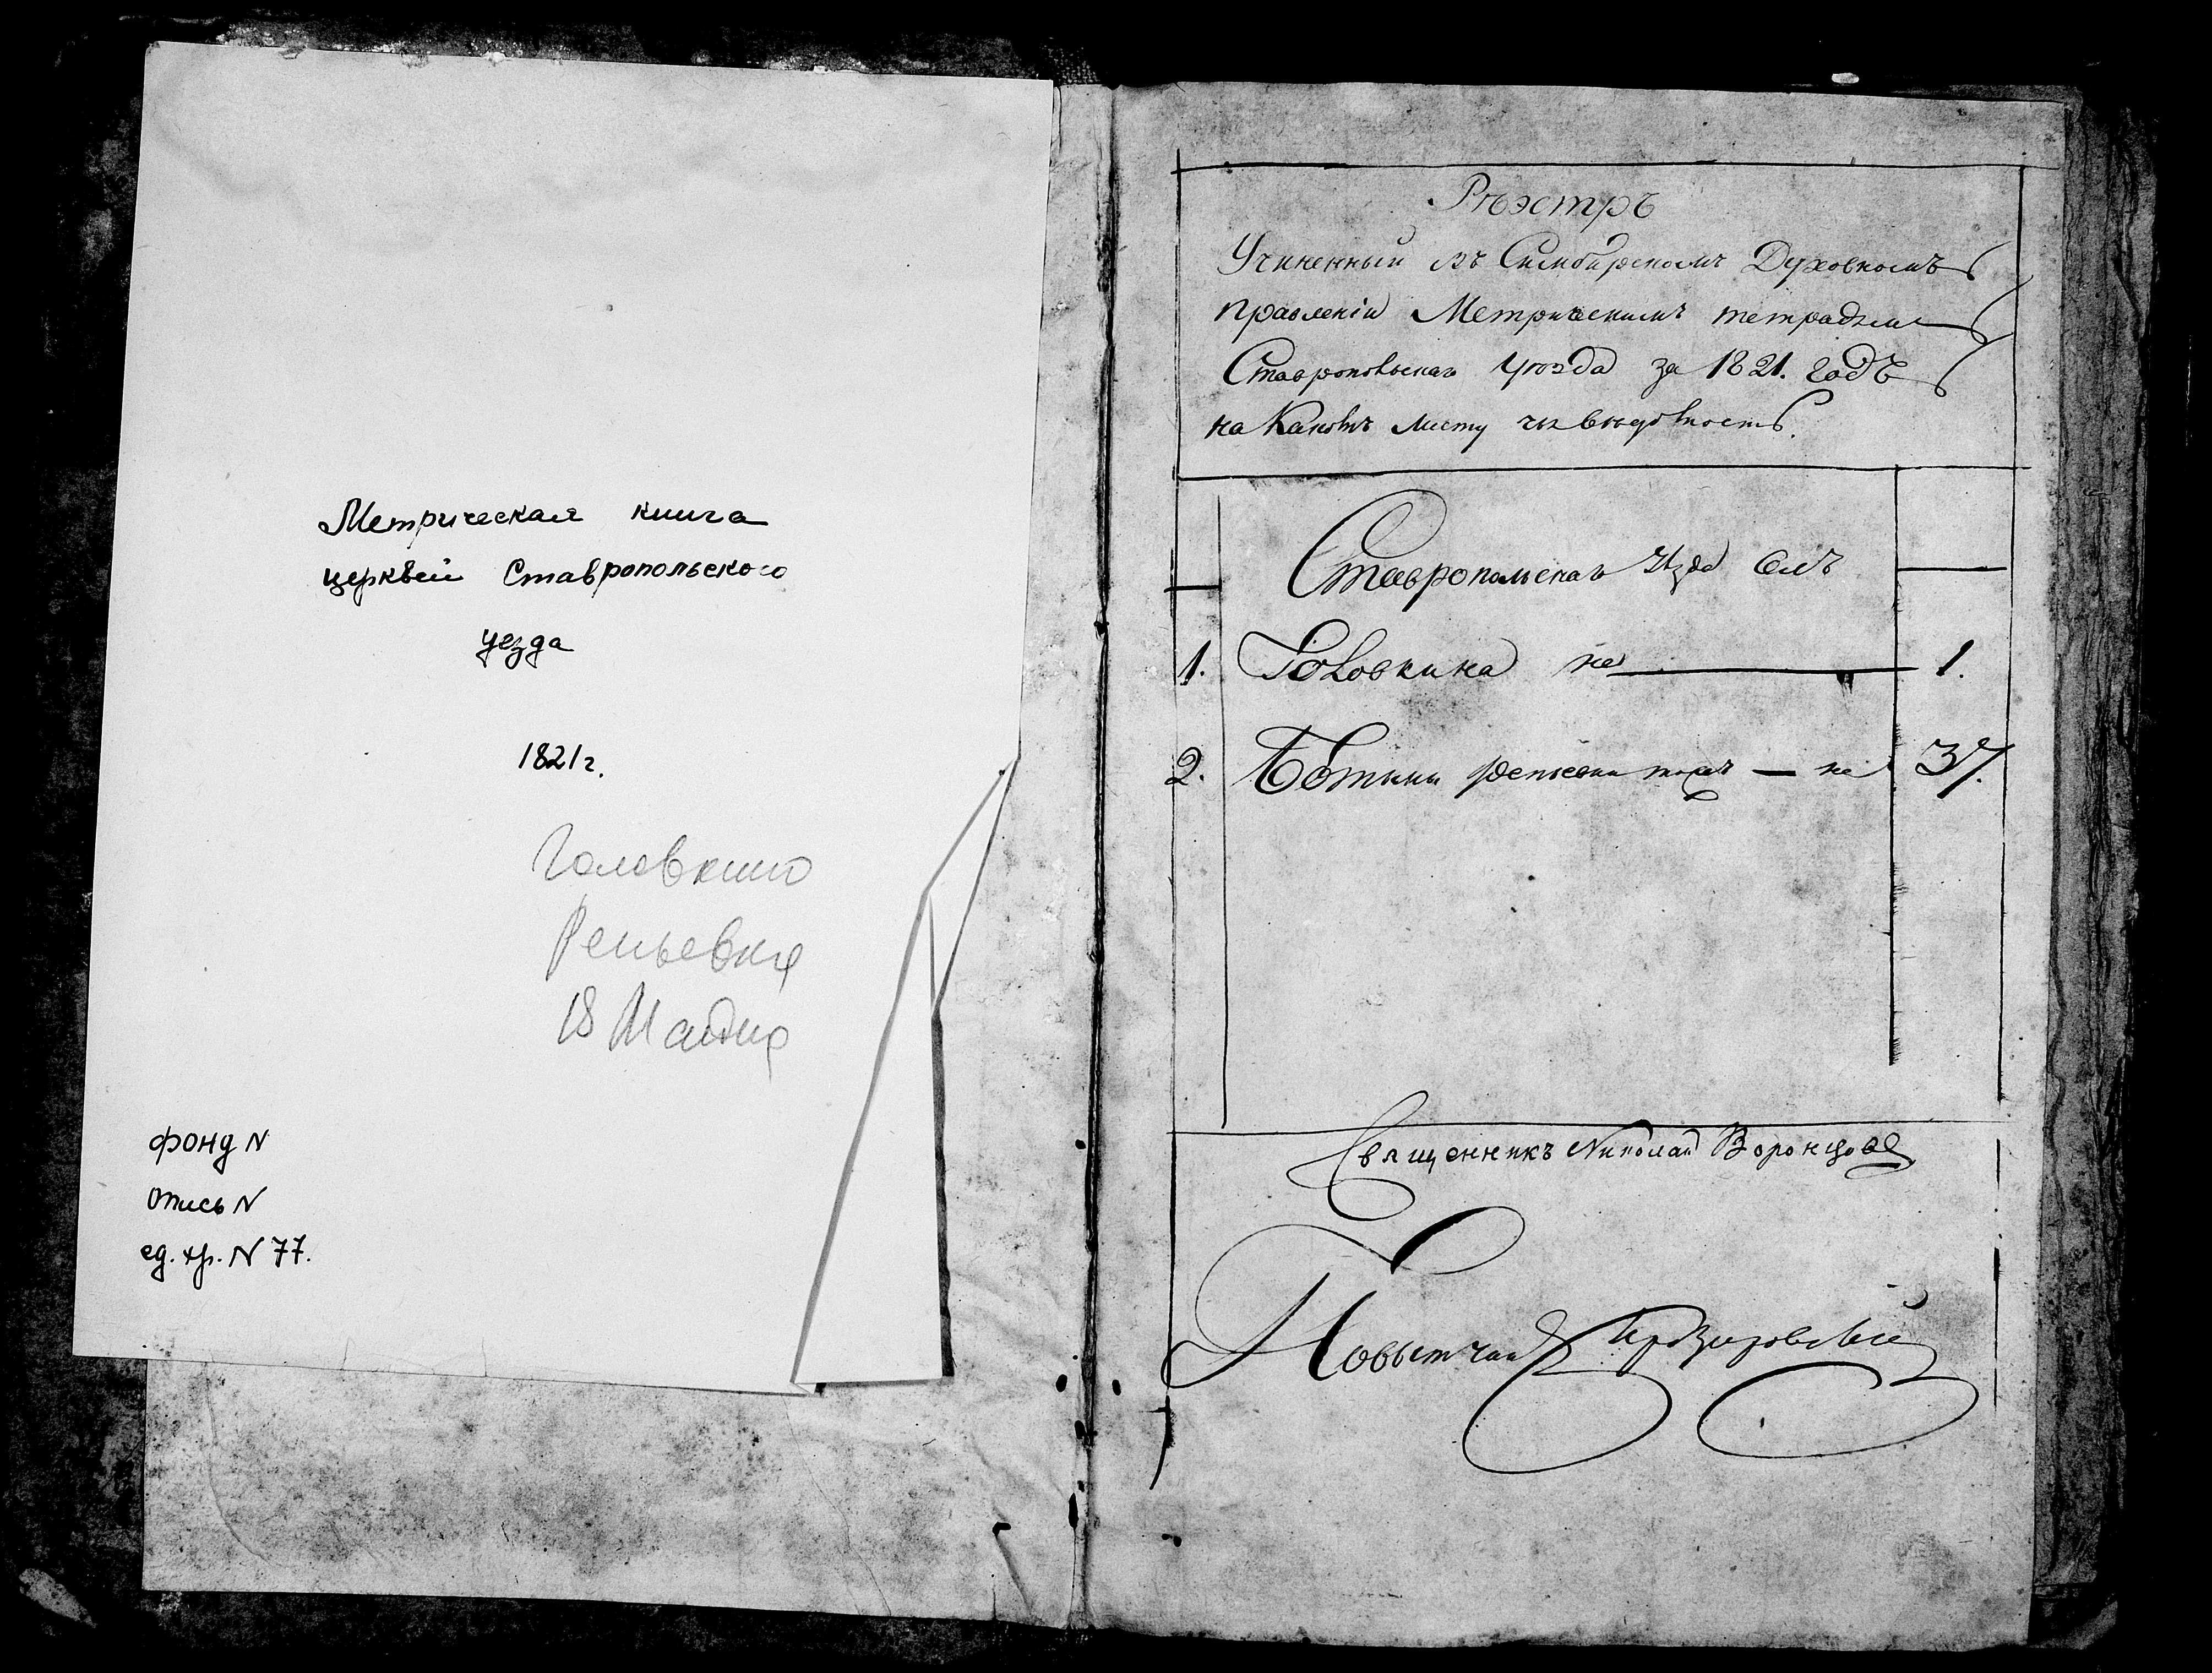 Метрическая книга
церквей Ставропольского
уезда
1821 г.
Головкино
Репьевка
Майна
фонд N
опись N
ед. хр. N 77.
Рѣэстръ
Учиненный въ Симбирскомъ Духовномъ
правленіи Метрическимъ тетрадям
Ставропольскаго уѣзда за 1821. годъ
на Какомъ листу чья ведомость.
Ставропольскаго уѣзда Селъ
1. Головкина на 1.
2. репьевки тожъ — на 37.
Священникъ Николай Воронцовъ
Повытчик